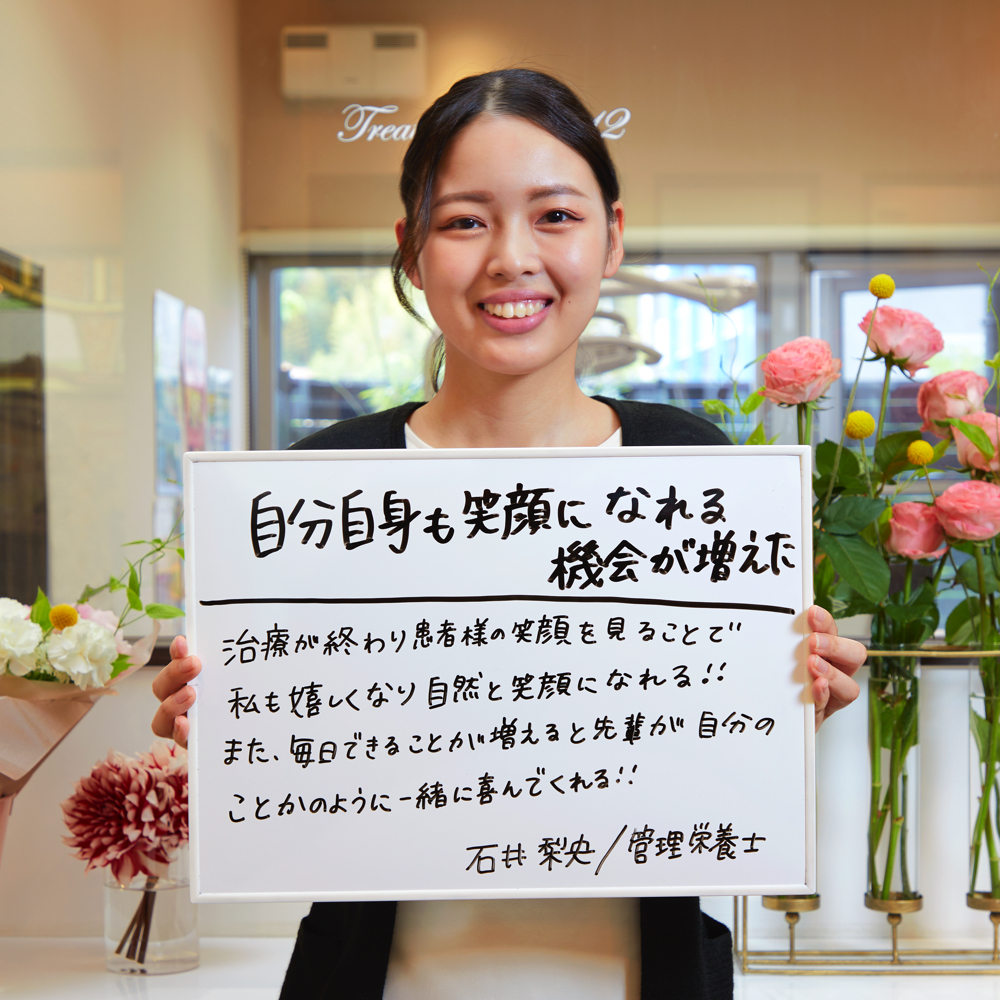 Trea
12
自分自身も笑顔になれる
機会が増えた
治療が終わり患者様の笑顔を見ることで
私も嬉しくなり自然と笑顔になれる!!
また、毎日できることが増えると先輩が自分の
ことかのように一緒に喜んでくれる!!
石井 梨央/管理栄養士